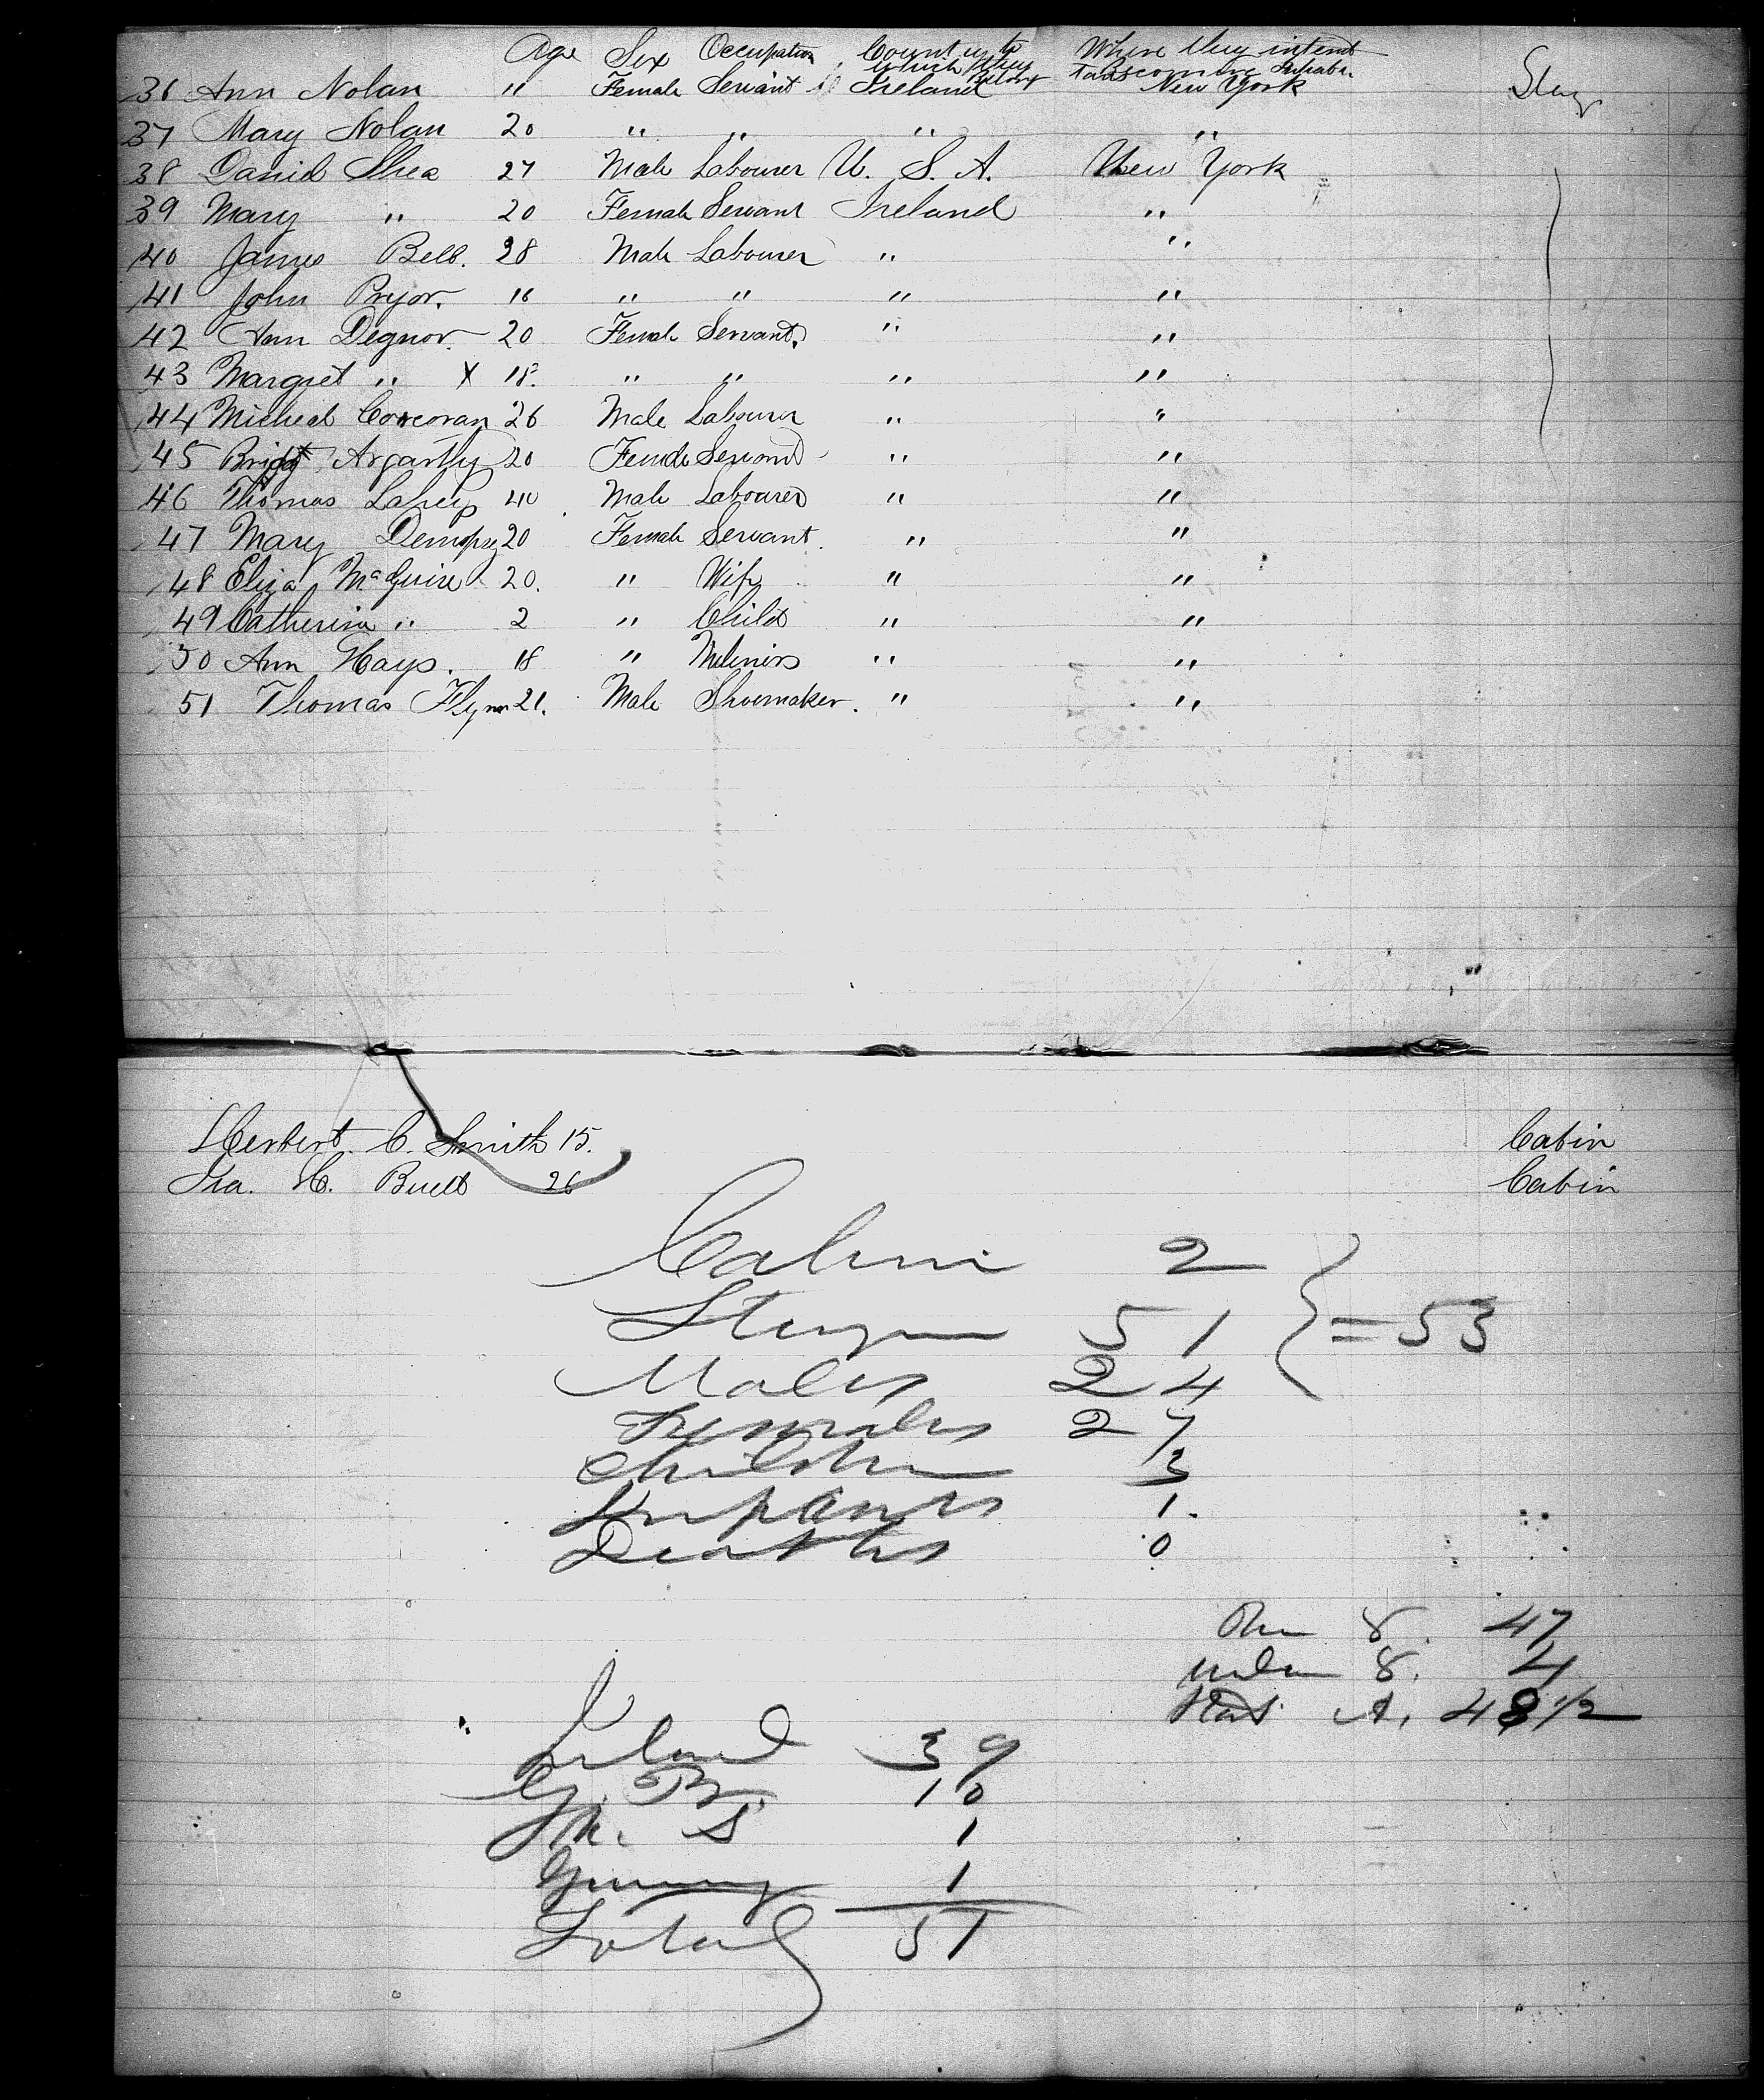 Age Sex Occupation Country to which they belong Where they intend to become Inhabts.
36 Ann Nolan " Female Servant Ireland New York Stag
37 Mary Nolan 20 " " " "
38 Daniel Shea 27 Male Labourer U. S. A. New York
39 Mary " 20 Female Servant Ireland "
40 James Bell. 28 Male Labourer " "
41 John Pryor. 16 " " " "
42 Ann Degnor. 20 Female Servant. " "
43 Margret " X 18. " " " "
44 Micheal Corcoran 26 Male Labourer " "
45 Bridgt Argartty 20 Female Servant " "
46 Thomas Lahey 40 Male Labourer " "
47 Mary Dempsey 20 Female Servant. " "
48 Eliza McGuire 20. " Wife " "
49 Catherine " 2 " Child " "
50 Ann Hays. 18 " " "
51 Thomas Flynn 21. Male Shoemaker. " "
Herbert. C. Smith 15. Cabin
Ira. H. Buell 26 Cabin
Cabin 2
Steerage 51 } = 53
Males 24
Females 27
Children 3
Infants 1.
Deaths 0
Over 8. 47
under 8. 4
Stat A. 48 1/2
Ireland 39
G. B. 10
U. S 1
Germany 1
Total 51